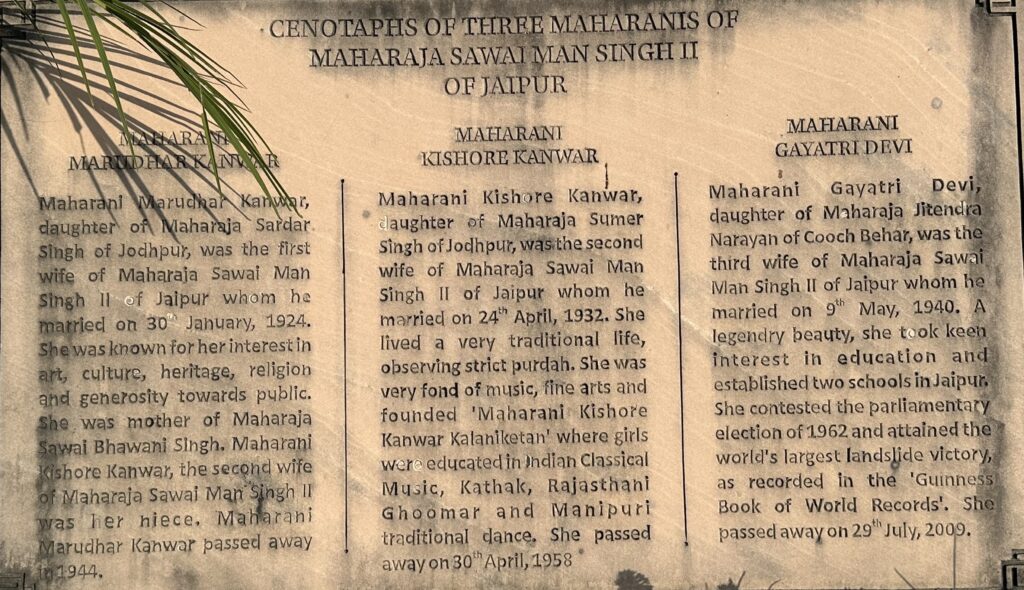 CENOTAPHS OF THREE MAHARANIS OF
MAHARAJA SAWAI MAN SINGH II
OF JAIPUR
MAHARANI
MARUDHAR KANWAR
Maharani Marudhar Kanwar,
daughter of Maharaja Sardar
Singh of Jodhpur, was the first
wife of Maharaja Sawai Man
Singh II of Jaipur whom he
married on 30th January, 1924.
She was known for her interest in
art, culture, heritage, religion
and generosity towards public.
She was mother of Maharaja
Sawai Bhawani Singh. Maharani
Kishore Kanwar, the second wife
of Maharaja Sawai Man Singh II
was her niece. Maharani
Marudhar Kanwar passed away
in 1944.
MAHARANI
KISHORE KANWAR
Maharani Kishore Kanwar,
daughter of Maharaja Sumer
Singh of Jodhpur, was the second
wife of Maharaja Sawai Man
Singh II of Jaipur whom he
married on 24th April, 1932. She
lived a very traditional life,
observing strict purdah. She was
very fond of music, fine arts and
founded 'Maharani Kishore
Kanwar Kalaniketan' where girls
were educated in Indian Classical
Music, Kathak, Rajasthani
Ghoomar and Manipuri
traditional dance. She passed
away on 30th April, 1958
MAHARANI
GAYATRI DEVI
Maharani Gayatri Devi,
daughter of Maharaja Jitendra
Narayan of Cooch Behar, was the
third wife of Maharaja Sawai
Man Singh II of Jaipur whom he
married on 9th May, 1940. A
legendry beauty, she took keen
interest in education and
established two schools in Jaipur.
She contested the parliamentary
election of 1962 and attained the
world's largest landslide victory,
as recorded in the 'Guinness
Book of World Records'. She
passed away on 29th July, 2009.